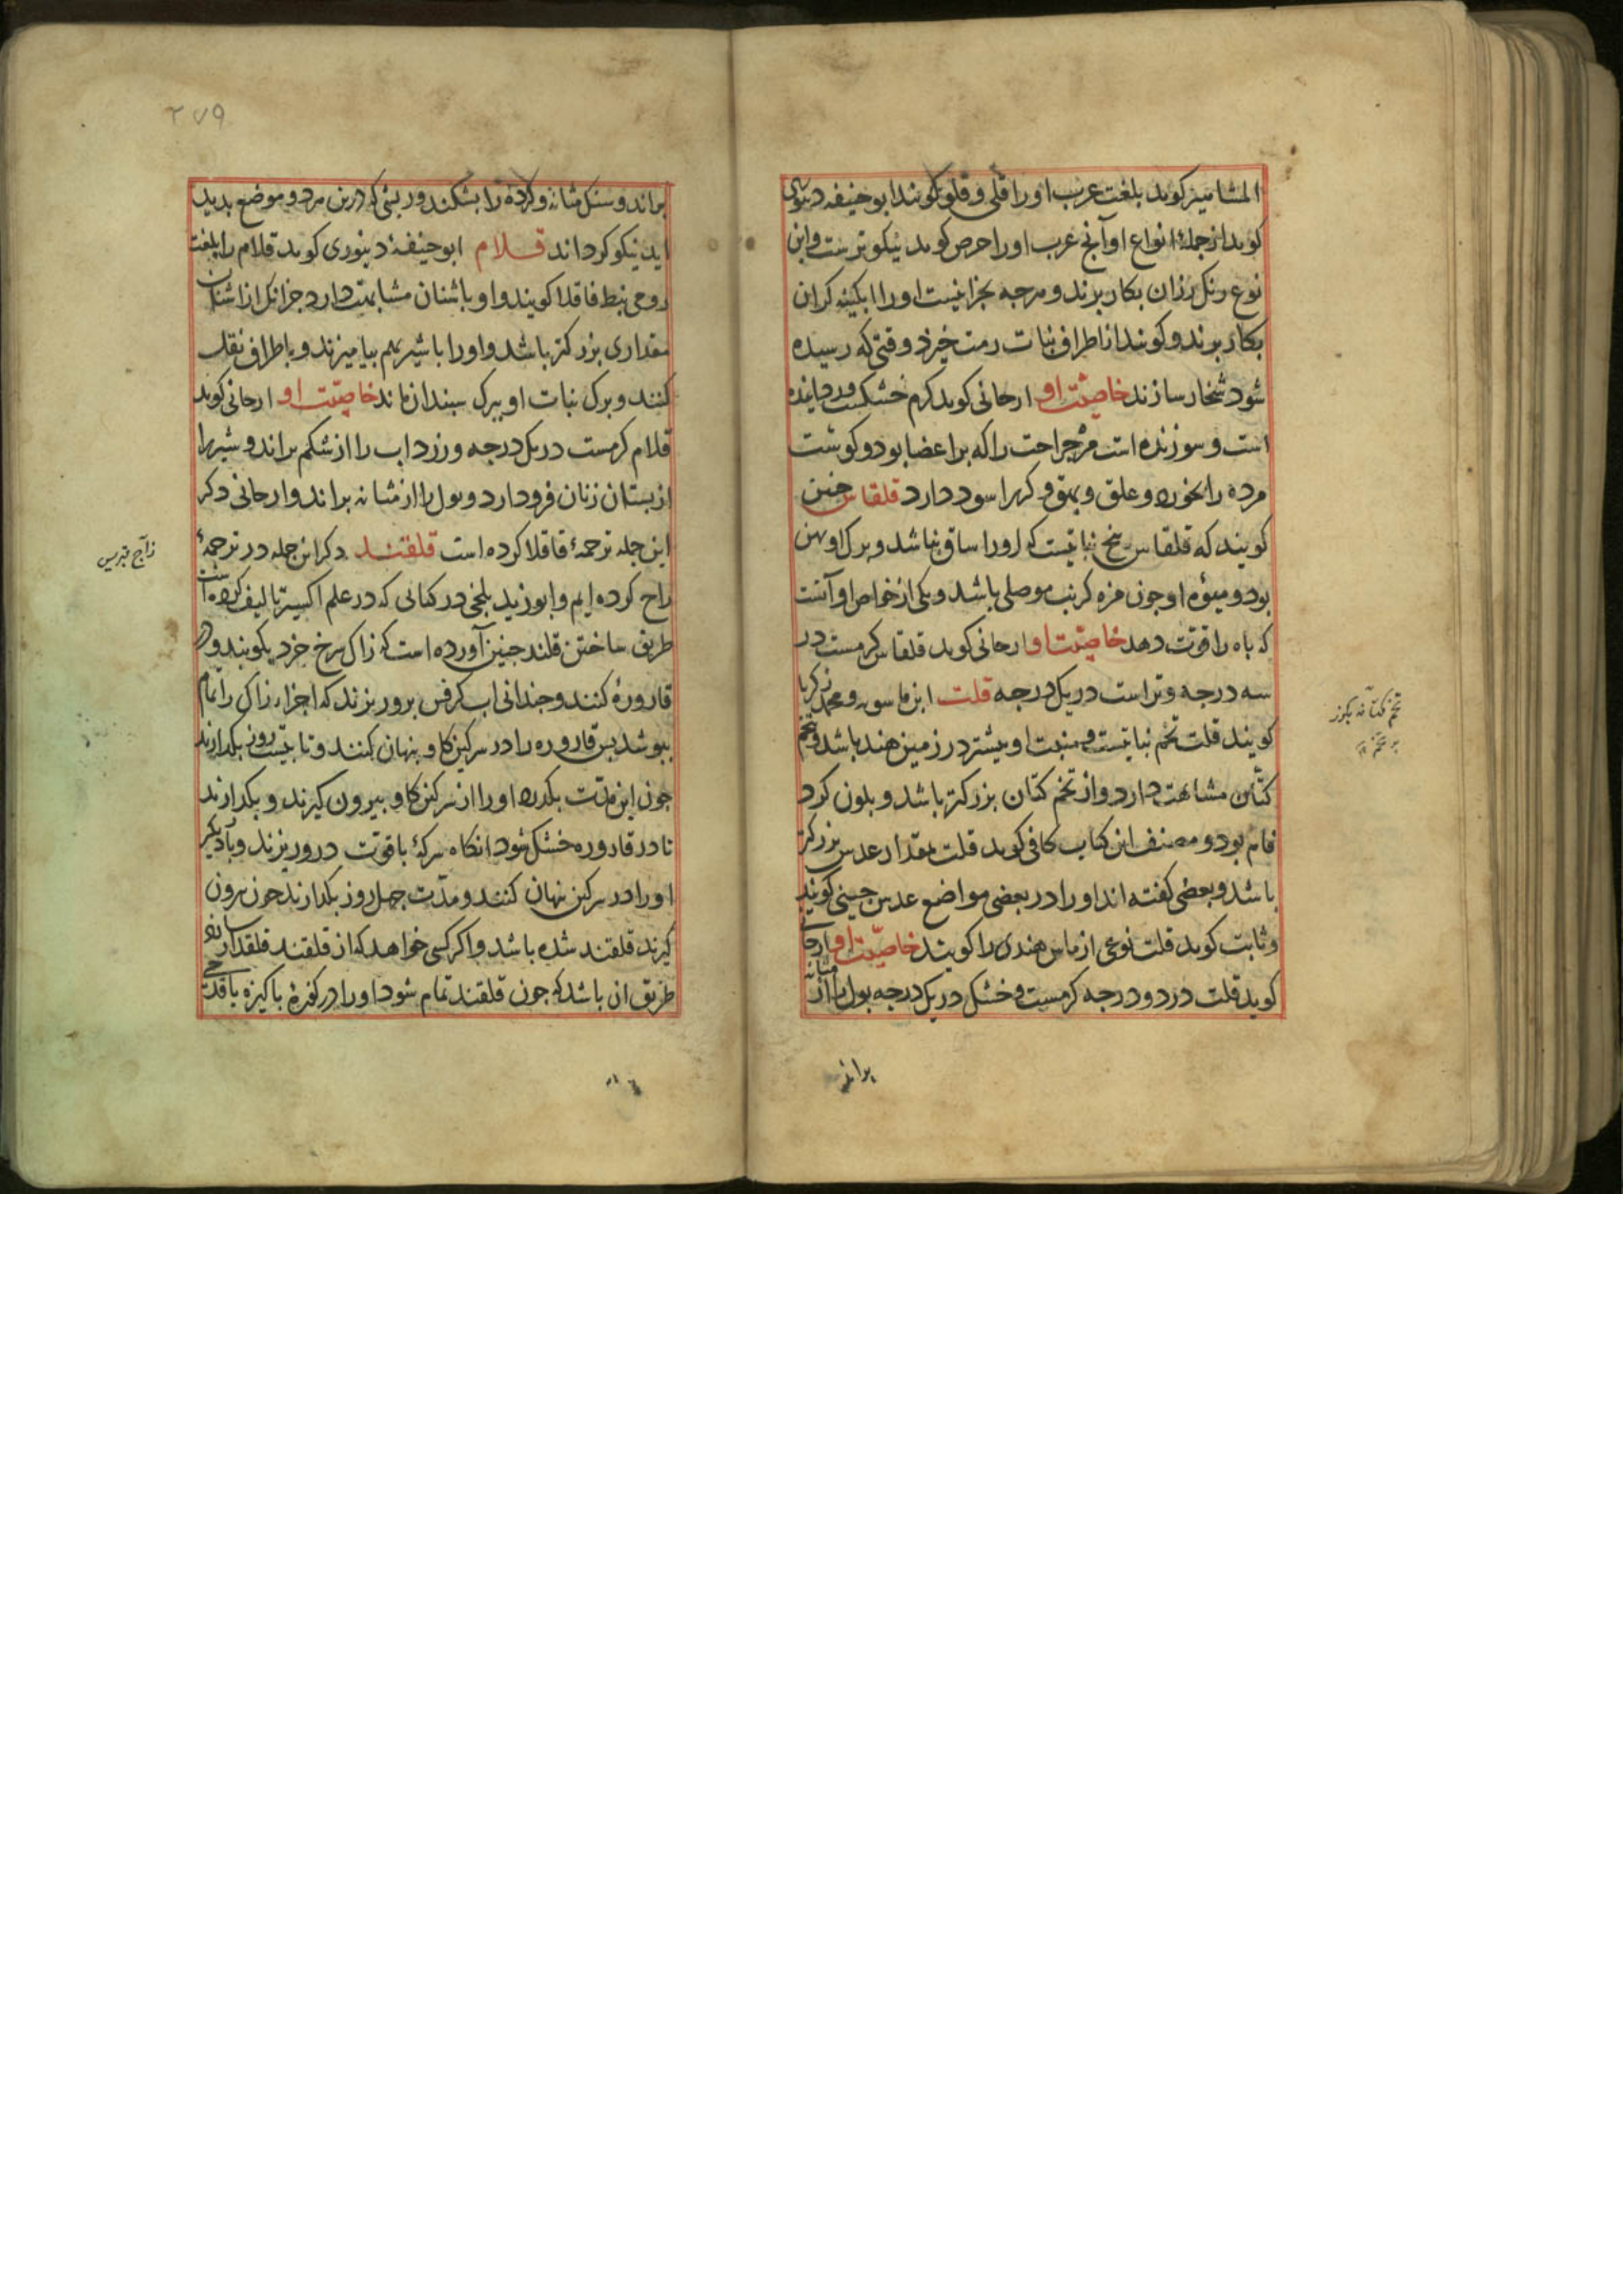 المشامیز کوید بلغت عرب او را قلی و قلو کویند ابو حنیفه دینوری
کوید از جمله انواع او آنج عرب او را حرض کوید نیکوترست و این
نوع رنک رزان بکار برند و هرجه بجز اینست او را ابکینه کران
بکار برند و کویند از اطراف نبات رمث خیزد وقتی که رسیده
شود شخار سازند خاصیت او ارجانی کوید کرم خشکست و
است و سوزنده است مر جراحت را که بر اعضا بود و کوشت
مرده را بخورد و علق و بهق و کر را سود دارد قلقاس جنین
کویند که قلقاس بیخ نباتیست که او را ساق نباشد و برک او بهن
بود و میوه او جون مزه کرنب موصلی باشد و یکی از خواص او آنست
که باه را قوت دهد خاصیت او ارجانی کوید قلقاس کرمست در
سه درجه و تر است در یک درجه قلت ابن ماسویه و محمد زکریا
کویند قلت تخم نباتیست و منبت او بیشتر در زمین هند باشد و بتخم
کتان مشابهت دارد و از تخم کتان بزرکتر باشد و بلون کرد
فام بود و مصنف این کتاب کافی کوید قلت بمقدار عدس بزرکتر
باشد و بعضی کفته اند او را در بعضی مواضع عدس جینی کویند
و ثابت کوید قلت نوعی از ماس هندی را کویند خاصیت او ارجانی
کوید قلت در دو درجه کرمست و خشک در یک درجه بول را از مثانه
براند
تخم کتانه
۲۷۹
براند و سنک مثانه و کرده را بشکند و ریشی که درین مرد و موضع بدید
اید نیکو کرداند قلام ابو حنیفه دینوری کوید قلام را بلغت
رومی نبط قاقلا کویند و او باشنان مشابهت دارد جز انک از اشنان
مقداری بزرکتر باشد و او را با شیر بهم بیامیزند و باطراف نقل
کنند و برک نبات او ببرک سبندان ماند خاصیت او ارجانی کوید
قلام کرمست در یک درجه و زرداب را از شکم براند و شیر را
از بستان زنان فرود ارد و بول را از مثانه براند و ارجانی ذکر
این جمله ترجمه قاقلا کرده است قلقند ذکر این جمله در ترجمه
زاج کرده ایم و ابو زید بلخی در کتابی که در علم اکسیر تالیف کرده است
طریق ساختن قلقند جنین آورده است که زاک سرخ خرد بکوبند و در
قاروره کنند و جندانی اب کرفس برو ریزند که اجزاء زاک را تمام
ببوشد بس قاروره را در سرکین کاو بنهان کنند و تا بیست روز بکدارند
جون این مدت بکذرد او را از سرکین کاو بیرون کیرند و بکدارند
تا در قاروره خشک شود انکاه سرکه با قوت درو ریزند و بار دیکر
او را در سرکین نهان کنند و مدت جهل روز بکدارند جون برون
کیرند قلقند شده باشد و اکر کسی خواهد که از قلقند قلقدار سازد
طریق ان باشد که جون قلقند تمام شود او را در کفجه باکیزه
زاج قبریس